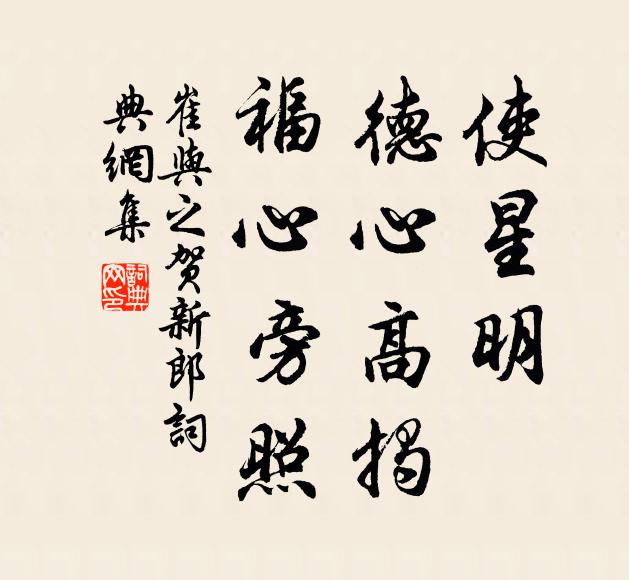 使星明
德心高揭
福心旁照
崔與之賀新郎詞
典網集
詞典网印